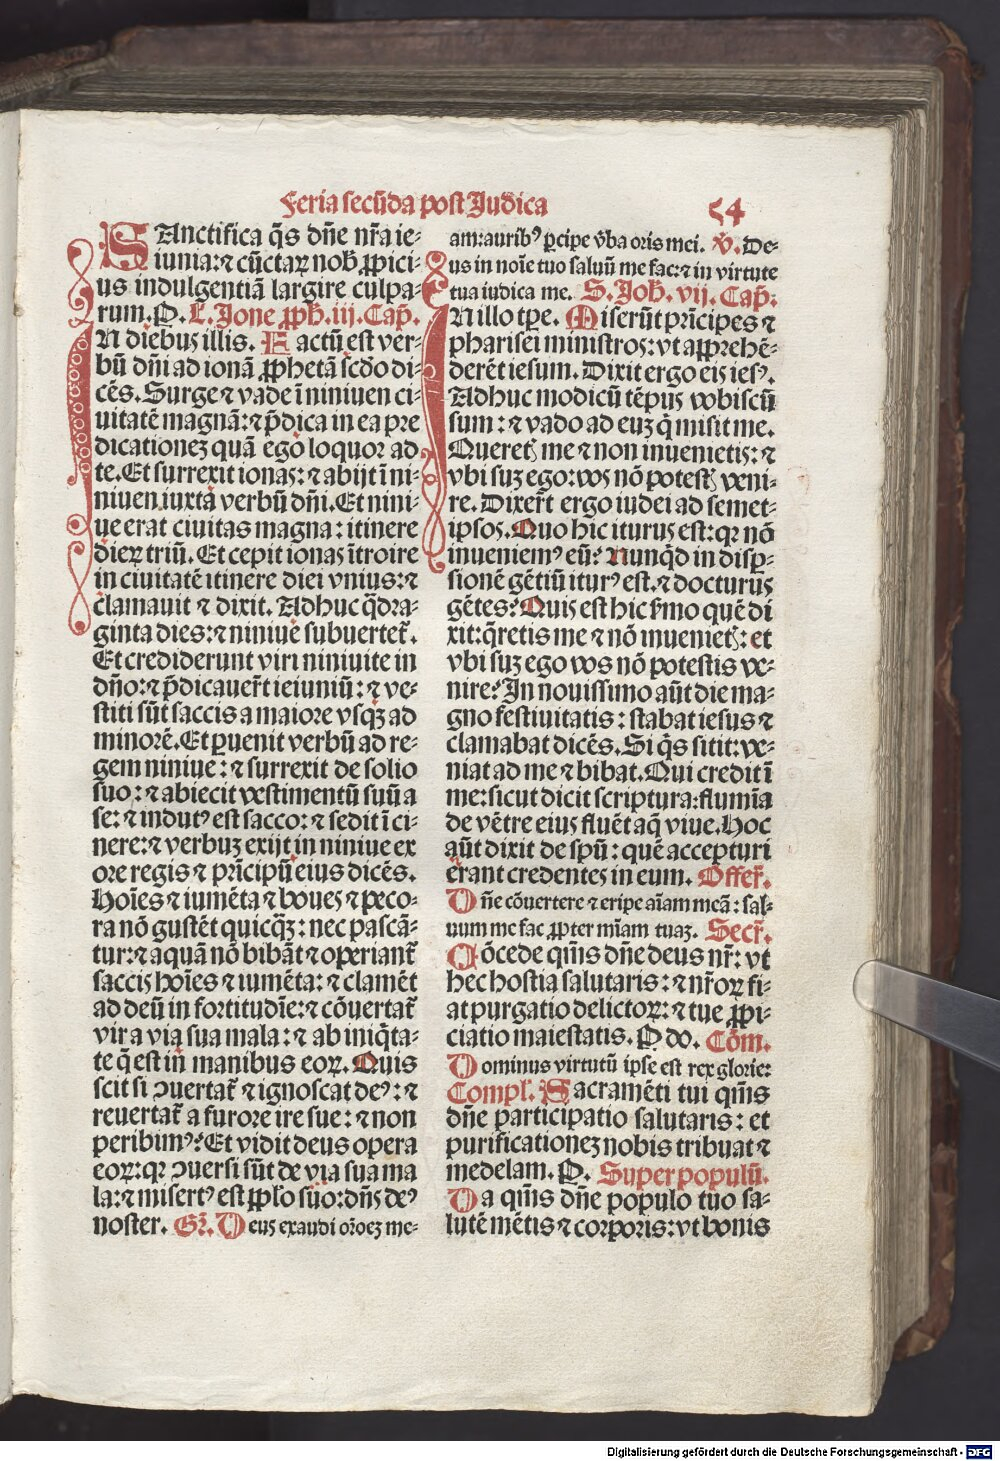 Feria secūda post Iudica
54
SAnctifica q̄s dn̄e nr̄a ie⸗
iunia:⁊ cūctaꝝ nob̄ ꝓpici⸗
us indulgentiā largire culpa⸗
rum.P. L. Jone ꝓph̄.iij.Cap̄.
IN diebus illis. Factū est ver⸗
bū dn̄i ad ionā ꝓphetā scd̄o di⸗
cēs.Surge ⁊ vade ī niniuen ci⸗
uitatē magnā:⁊ p̄dica in ea pre
dicationez quā ego loquor ad
te.Et surrexit ionas:⁊ abijt ī ni⸗
niuen iuxta verbū dn̄i.Et nini⸗
ue erat ciuitas magna: itinere
dieꝝ triū. Et cepit ionas ītroire
in ciuitatē itinere diei vnius:⁊
clamauit ⁊ dixit. Adhuc q̄dra⸗
ginta dies:⁊ niniue subuertet᷑.
Et crediderunt viri niniuite in
dn̄o:⁊ p̄dicauer̄t ieiuniū: ⁊ ve⸗
stiti sūt saccis a maiore vsqꝫ ad
minorē.Et ꝑuenit verbū ad re⸗
gem niniue: ⁊ surrexit de solio
suo: ⁊ abiecit vestimentū suū a
se: ⁊ indutꝰ est sacco: ⁊ sedit ī ci⸗
nere:⁊ verbuz exijt in niniue ex
ore regis ⁊ prīcipū eius dicēs.
Hoīes ⁊ iumēta ⁊ boues ⁊ peco⸗
ra nō gustēt quicqꝫ: nec pascā⸗
tur:⁊ aquā nō bibāt ⁊ operiant᷑
saccis hoīes ⁊ iumēta: ⁊ clamēt
ad deū in fortitudīe:⁊ cōuertat᷑
vir a via sua mala: ⁊ ab iniq̄ta⸗
te q̄ est in manibus eoꝝ. Quis
scit si ꝯuertat᷑ ⁊ ignoscat deꝰ: ⁊
reuertat᷑ a furore ire sue: ⁊ non
peribimꝰ? Et vidit deus opera
eoꝝ: qꝛ ꝯuersi sūt de via sua ma
la:⁊ misertꝰ est ppl̄o suo:dn̄s deꝰ
noster. Gr̄. Deus exaudi or̄oez me⸗
am:auribꝰ ꝑcipe v̄ba oris mei. V̄.De⸗
us in noīe tuo saluū me fac:⁊ in virtute
tua iudica me. S.Joh̄.vij.Cap̄.
IN illo tp̄e. Miserūt prīcipes ⁊
pharisei ministros:vt apprehē⸗
derēt iesum. Dixit ergo eis iesꝰ.
Adhuc modicū tēpus vobiscū
sum: ⁊ vado ad euz q̄ misit me.
Queretꝭ me ⁊ non inuenietis: ⁊
vbi suz ego:vos nō potestꝭ veni⸗
re. Dixer̄t ergo iudei ad semet⸗
ipsos.Quo hic iturus est:qꝛ nō
inueniemꝰ eū? Nunq̄d in disꝑ⸗
sionē gētiū iturꝰ est.⁊ docturus
gētes? Quis est hic s̄mo quē di
xit:q̄retis me ⁊ nō inuenietꝭ: et
vbi suz ego vos nō potestis ve⸗
nire? In nouissimo aūt die ma⸗
gno festiuitatis: stabat iesus ⁊
clamabat dicēs.Si q̄s sitit:ve⸗
niat ad me ⁊ bibat.Qui credit ī
me:sicut dicit scriptura:flumīa
de vētre eius fluēt aq̄ viue.Hoc
aūt dixit de spū: quē accepturi
erant credentes in eum. Offer̄.
Dn̄e cōuertere ⁊ eripe aīam meā: sal⸗
uum me fac ꝓpter mīam tuaz. Secr̄.
Cōcede qm̄s dn̄e deus nr̄: vt
hec hostia salutaris: ⁊ nr̄oꝝ fi⸗
at purgatio delictoꝝ: ⁊ tue ꝓpi⸗
ciatio maiestatis. P do. Cōm.
Dominus virtutū ipse est rex glorie:
Compl̄. Sacramēti tui qm̄s
dn̄e participatio salutaris: et
purificationez nobis tribuat ⁊
medelam. P. Super populū.
Da qm̄s dn̄e populo tuo sa⸗
lutē mētis ⁊ corporis: vt bonis
Digitalisierung gefördert durch die Deutsche Forschungsgemeinschaft - DFG